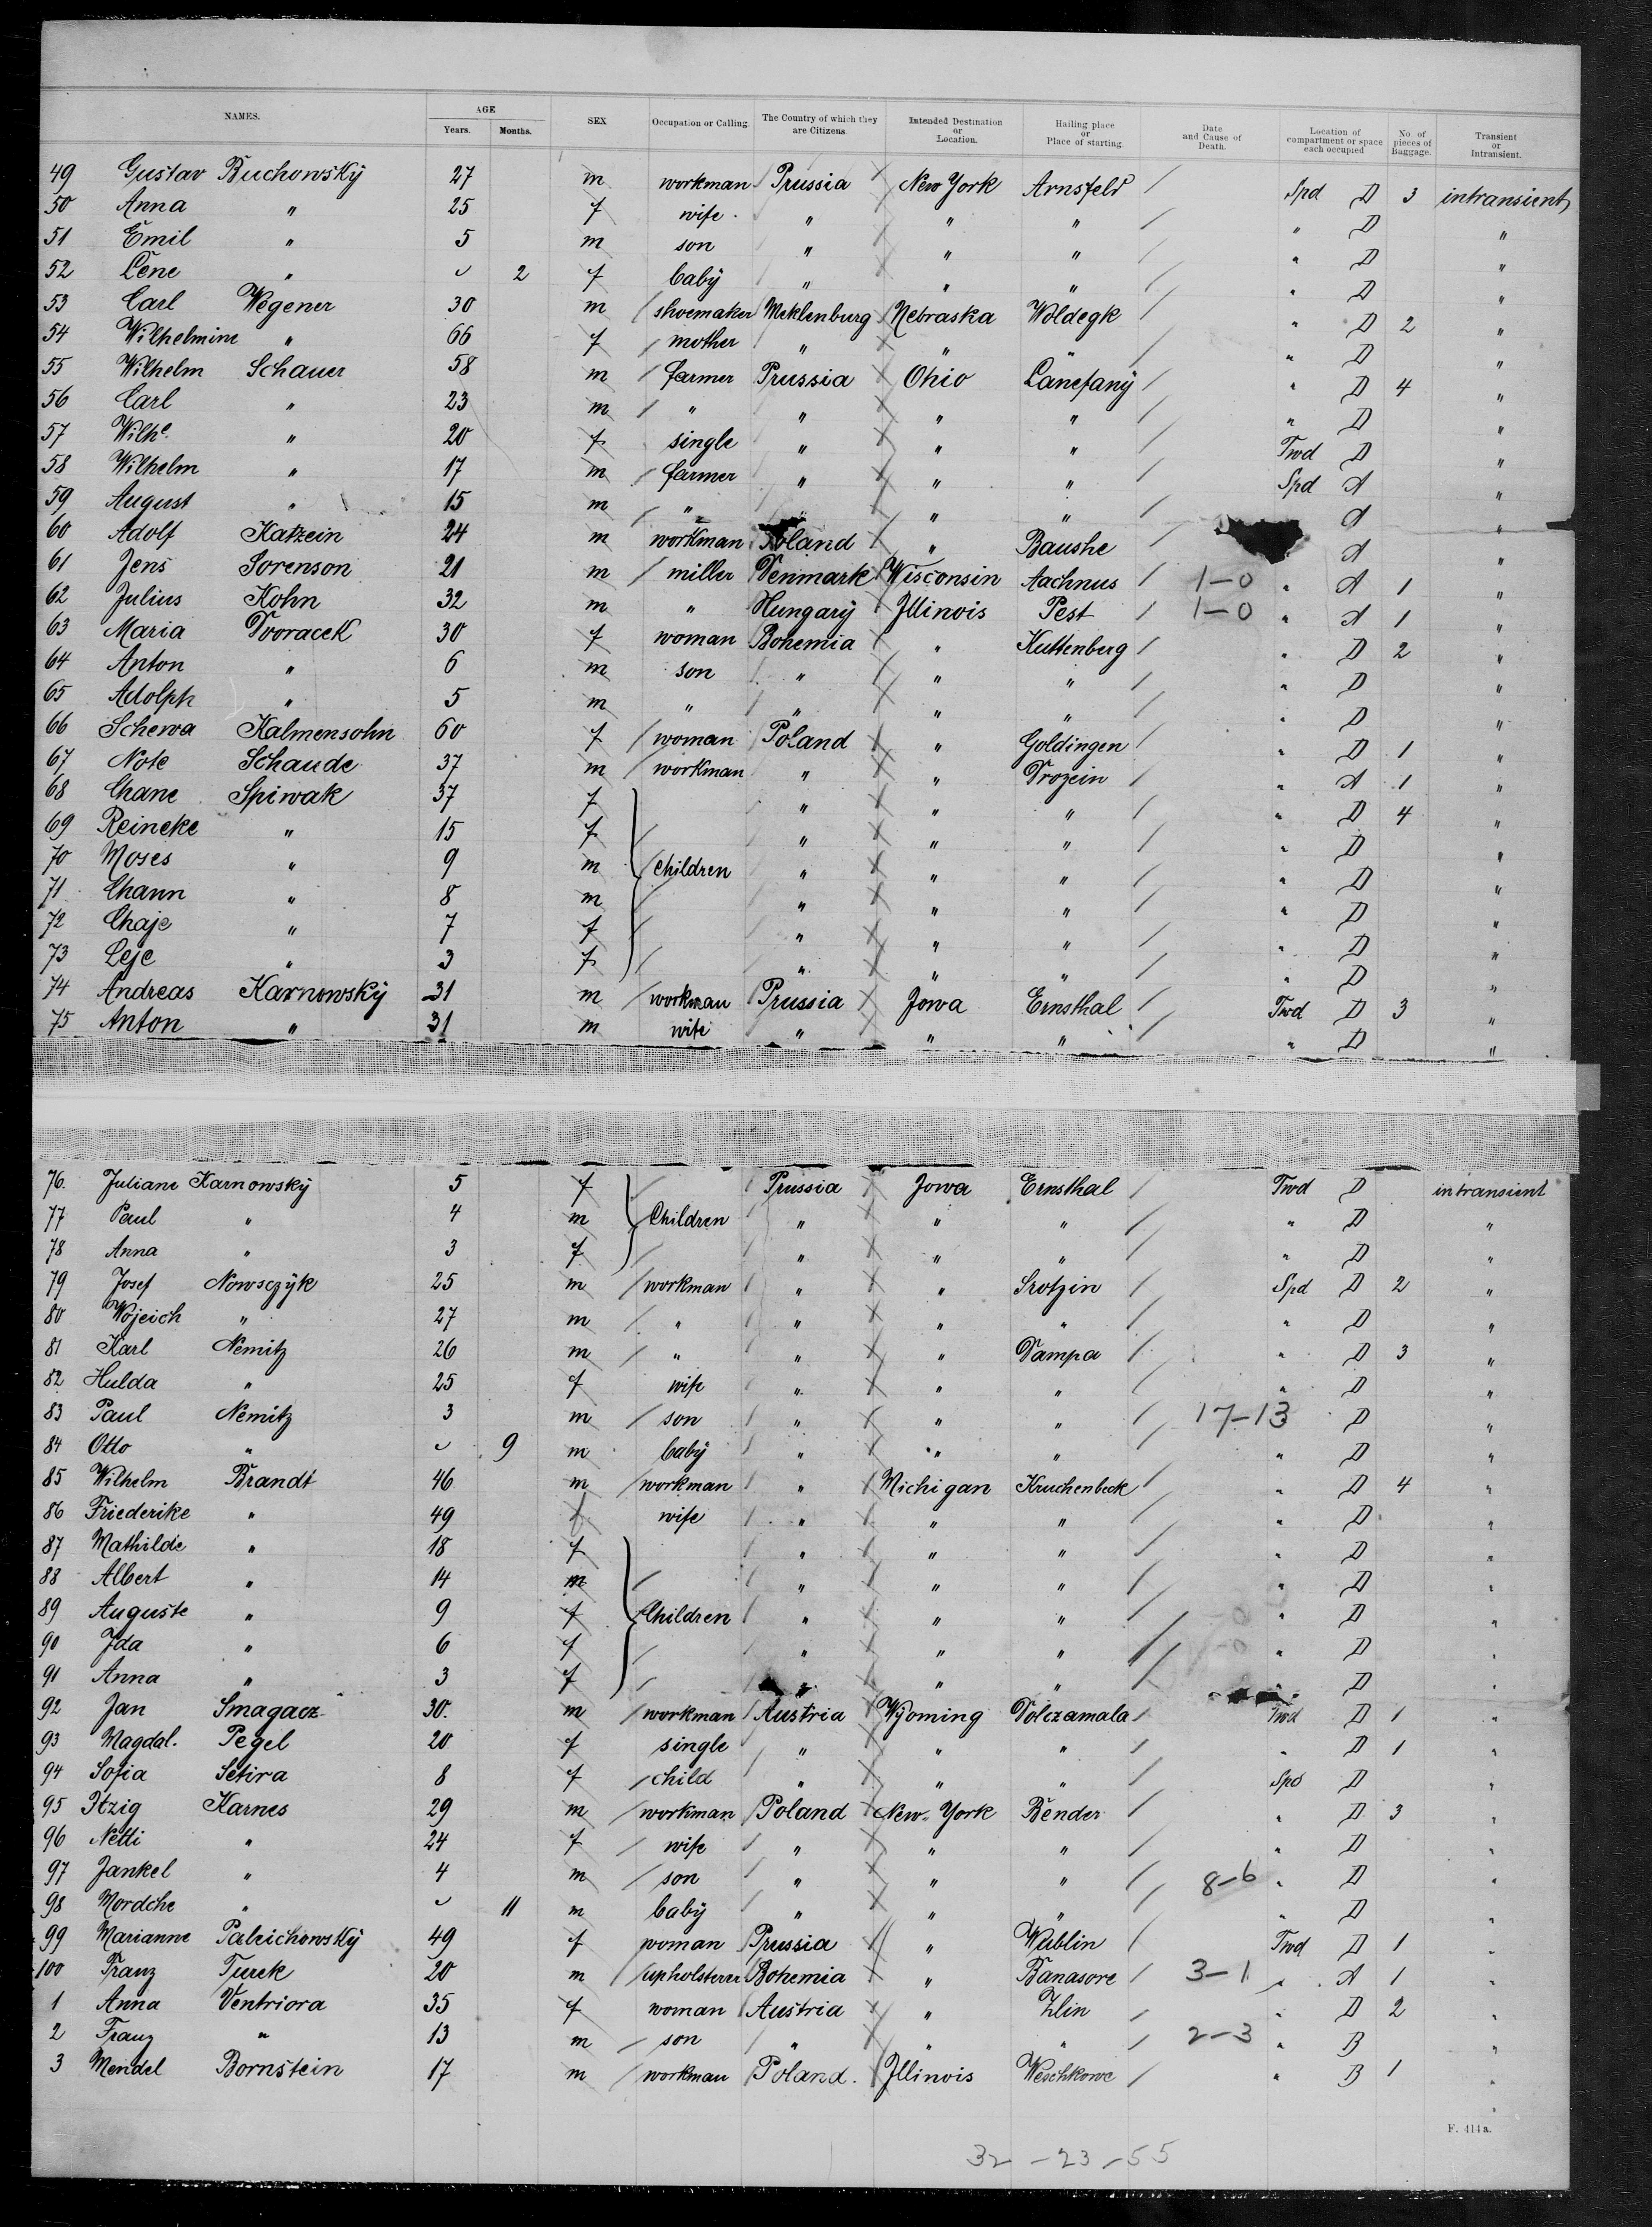 NAMES. AGE Years. Months. SEX Occupation or Calling. The Country of which they are Citizens. Intended Destination or Location. Hailing place or Place of starting. Date and Cause of Death. Location of compartment or space each occupied No. of pieces of Baggage. Transient or Intransient.
49 Gustav Buchowsky 27 m workman Prussia New York Arnsfeld Spd D 3 intransient
50 Anna " 25 f wife " " " " D "
51 Emil " 5 m son " " " " D "
52 Lene " 2 f baby " " " " D "
53 Carl Wegener 30 m shoemaker Meklenburg Nebraska Woldegk " D 2 "
54 Wilhelmine " 66 f mother " " " " D "
55 Wilhelm Schauer 58 m farmer Prussia Ohio Lanefany " D 4 "
56 Carl " 23 m " " " " " D "
57 Wilhe " 20 f single " " " Twd D "
58 Wilhelm " 17 m farmer " " " Spd A "
59 August " 15 m " " " A "
60 Adolf Katzein 24 m workman Poland " Baushe A "
61 Jens Sorenson 21 m miller Denmark Wisconsin Aachnus 1-0 " A 1 "
62 Julius Kohn 32 m " Hungary Illinois Pest 1-0 " A 1 "
63 Maria Dvoracek 30 f woman Bohemia " Kuttenberg " D 2 "
64 Anton " 6 m son " " " " D "
65 Adolph " 5 m " " " " " D "
66 Schewa Kalmensohn 60 f woman Poland " Goldingen " D 1 "
67 Note Schaude 37 m workman " " Drozein " A 1 "
68 Chane Spiwak 37 f " " " " D 4 "
69 Reineke " 15 f " " " " D "
70 Moses " 9 m Children " " " " D "
71 Chann " 8 m " " " " D "
72 Chaje " 7 f " " " " D "
73 Leje " 3 f " " " " D "
74 Andreas Karnowsky 31 m workman Prussia Jowa Ernsthal Twd D 3 "
75 Anton " 31 m wife " " " " D "
76. Juliane Karnowsky 5 f Prussia Jowa Ernsthal Twd D intransient
77 Paul " 4 m Children " " " " D "
78 Anna " 3 f " " " " D "
79 Josef Nowsczyk 25 m workman " " Srotzin Spd D 2 "
80 Wojeich " 27 m " " " " " D "
81 Karl Nemitz 26 m " " " Dampa " D 3 "
82 Hulda " 25 f wife " " " " D "
83 Paul Nemitz 3 m son " " " 17-13 D "
84 Otto " 9 m baby " " " " D "
85 Wilhelm Brandt 46 m workman " Michigan Kruchenbeck " D 4 "
86 Friederike " 49 f wife " " " " D "
87 Mathilde " 18 f " " " " D "
88 Albert " 14 m " " " " D "
89 Auguste " 9 f Children " " " " D "
90 Ida " 6 f " " " " D "
91 Anna " 3 f " " " D "
92 Jan Smagacz 30. m workman Austria Wyoming Dolczamala Twd D 1 "
93 Magdal. Pegel 20 f single " " " " D 1 "
94 Sofia Setira 8 f child " " " Spd D "
95 Itzig Karnes 29 m workman Poland New-York Bender " D 3 "
96 Netti " 24 f wife " " " " D "
97 Jankel " 4 m son " " " 8-6 " D "
98 Mordche " 11 m baby " " " " D "
99 Marianne Palrichowsky 49 f woman Prussia " Wublin Twd D 1 "
100 Franz Turek 20 m upholsterer Bohemia " Banasore 3-1 " A 1 "
1 Anna Ventriora 35 f woman Austria " Zlin " D 2 "
2 Franz " 13 m son " " " 2-3 " B "
3 Mendel Bornstein 17 m workman Poland. Illinois Weschkowe " B 1 "
F. 414a.
32 - 23 - 55